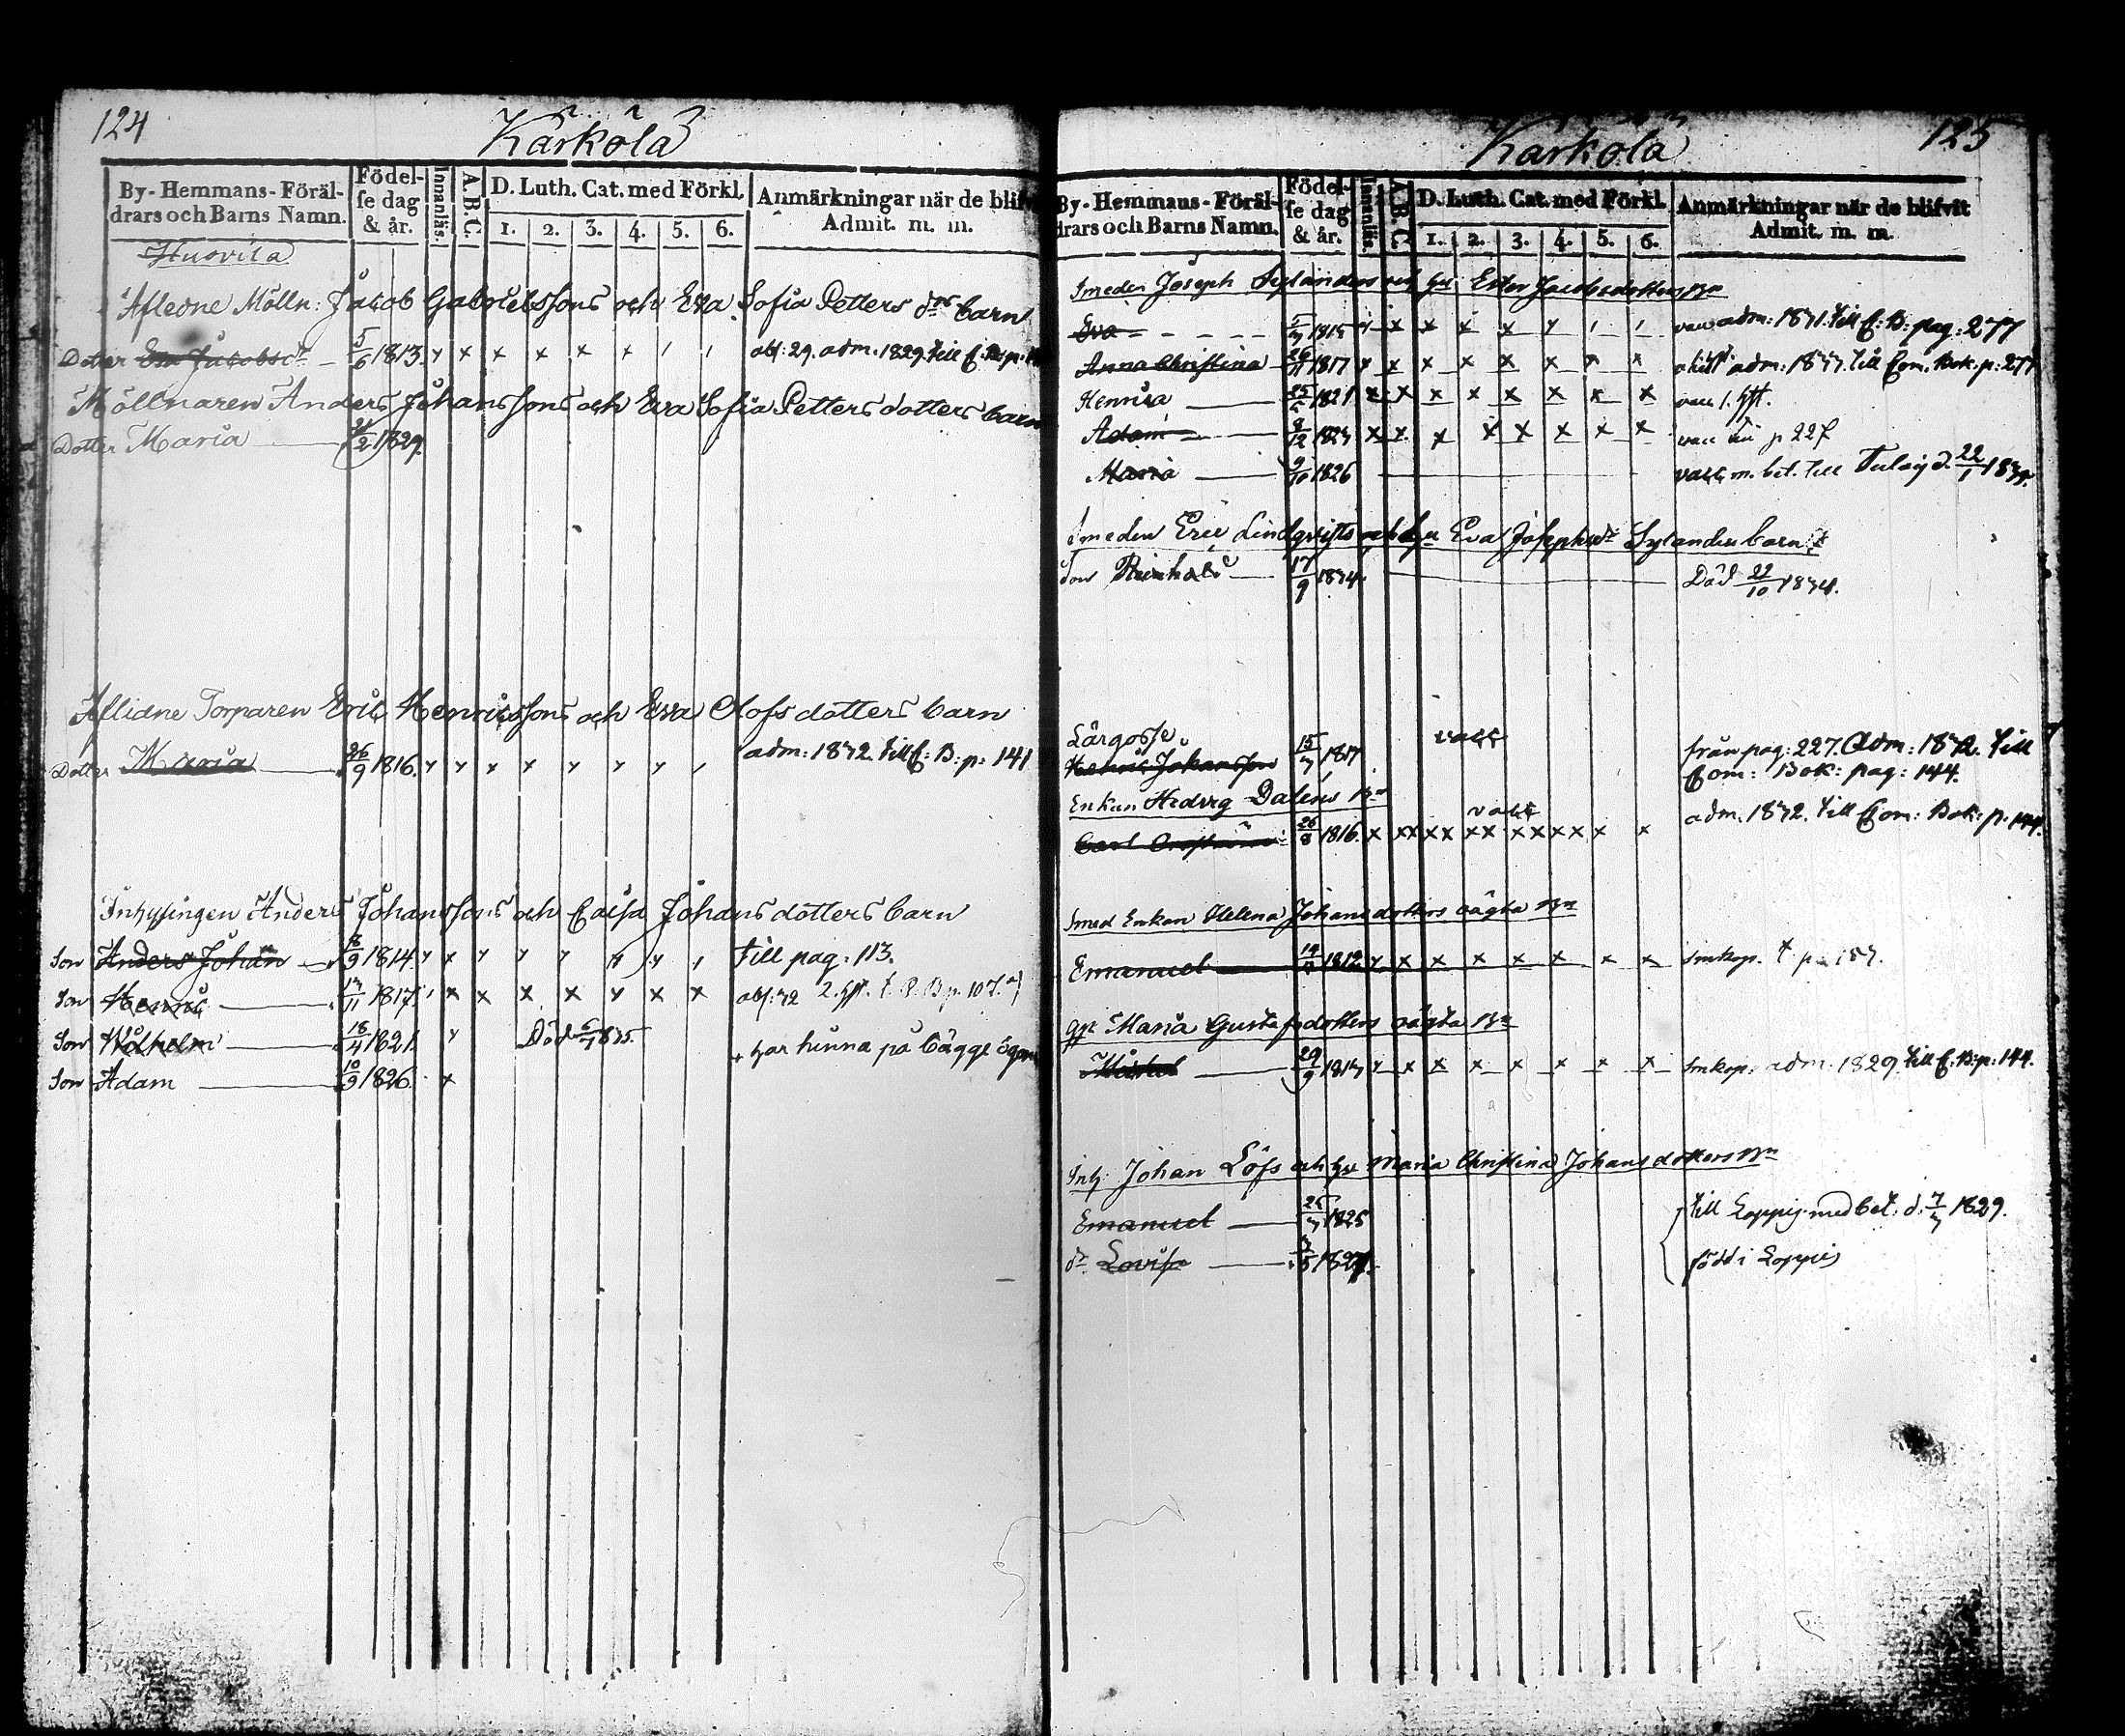 124
Kärkölä
By-Hemmans-Föräl-
drars och Barns Namn.
Födel-
se dag
& år.
Innanläs.
A.B.C.
D. Luth. Cat. med Förkl.
1. 2. 3. 4. 5. 6.
Anmärkningar när de blifv
Admit. m. m.
Huovila
Afledne Mölln: Jacob Gabrielssons och Eva Sofia Petters drs barn
Dotter Eva Jacobsdr 5/6 1813. abs: 29. adm. 1829. till C. B: p:
Möllnaren Anders Johanssons och Eva Sofia Petters dotters barn
Dotter Maria 1829.
Aflidne Torparen Eric Henricssons och Eva Olofs dotters barn
Dotter Maria 26/9 1816. adm: 1832. till C: B: p: 141
Inhysingen Anders Johanssons och Caisa Johans dotters barn
Son Anders Johan 1814. till pag: 113.
Son Henric 1817. abs: 32 2. hft. t. C. B p. 107.
Son Wilhelm 18/4 1821. Död 1835. + har hinna på bägge ögon
Son Adam 10/9 1826.
125
Kärkölä
By-Hemmans-Föräl-
drars och Barns Namn.
Födel-
se dag
& år.
Innanläs.
A.B.C.
D. Luth. Cat. med Förkl.
1. 2. 3. 4. 5. 6.
Anmärkningar när de blifvit
Admit. m. m.
Smeden Joseph Sylanders och hu: Ester Jacobsdotters Bn
Eva 1815 vacc adm: 1831. till C: B: pag: 277
Anna Christina 1817 adm: 1833. till Com. Bok: p: 277
Henrica 25 1821. vacc 1. hft.
Adam 8/12 1823 vacc p 227
Maria 9/10 1826 vacc m. bet. till d. 22/1
Smeden Eric Lindqvists och hu Eva Josephsdr Sylanders barn
Son Reinhold 17/9 1834. Död 22/10 1834.
Lärgosse
Henric Johansson 15 1817 vacc från pag: 227. Adm: 1832. till
Com: Bok: pag: 144.
Enkan Hedvig Daléns Bn
Carl 26/8 1816. vacc adm. 1832. till Com: Bok: p. 144.
Smed Enkan Helena Johansdotters oägta Bn
Emanuel 14 1812 smkop.
Maria Gustafsdotters oägta Bn
29/9 1813 smkop. adm. 1829. till C: B: p: 144.
Inh: Johan Löfs och hu Maria Christina Johans dotters Bn
Emanuel 25 1825 till Loppis med bet. d. 1829.
dr Lovisa 1827. född i Loppis